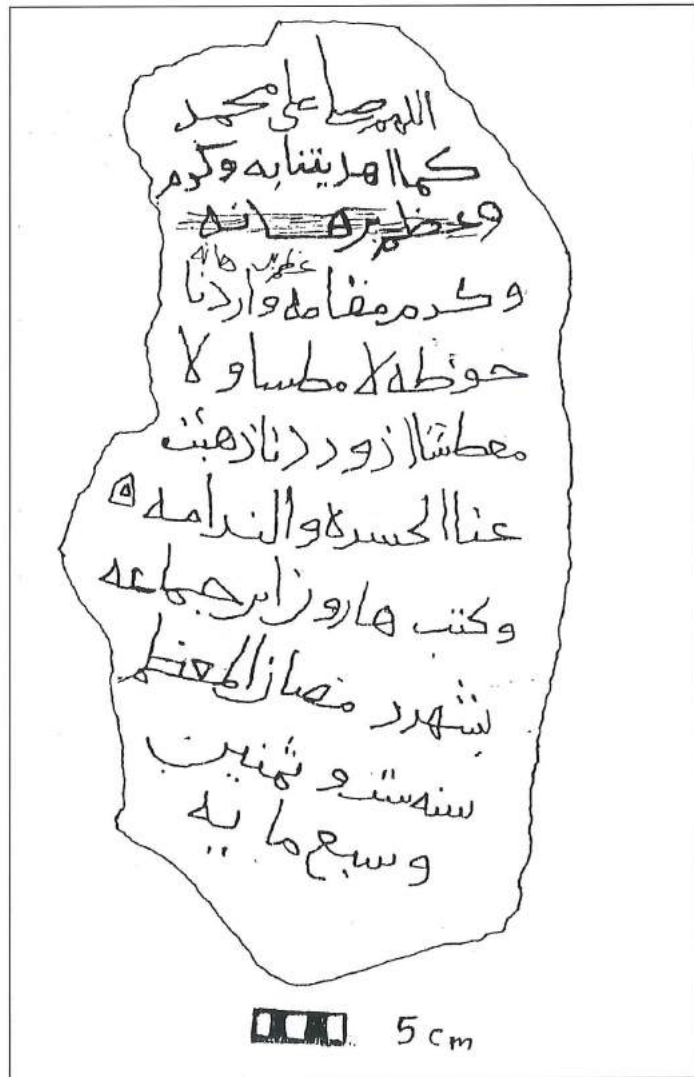 اللهم صل على محمد
كما اهديتنا به وكرم
وعظم برهانه
عظم برهانه
وكرم مقامه واردنا
حوظه لا مطسا ولا
معطشا اذ وردنا ذهبت
عنا الحسره والندامه ه
وكتب هارون ابن جماعه
بشهر رمضان المعظم
سنه ست وثمنين
وسبع مايه
5 cm